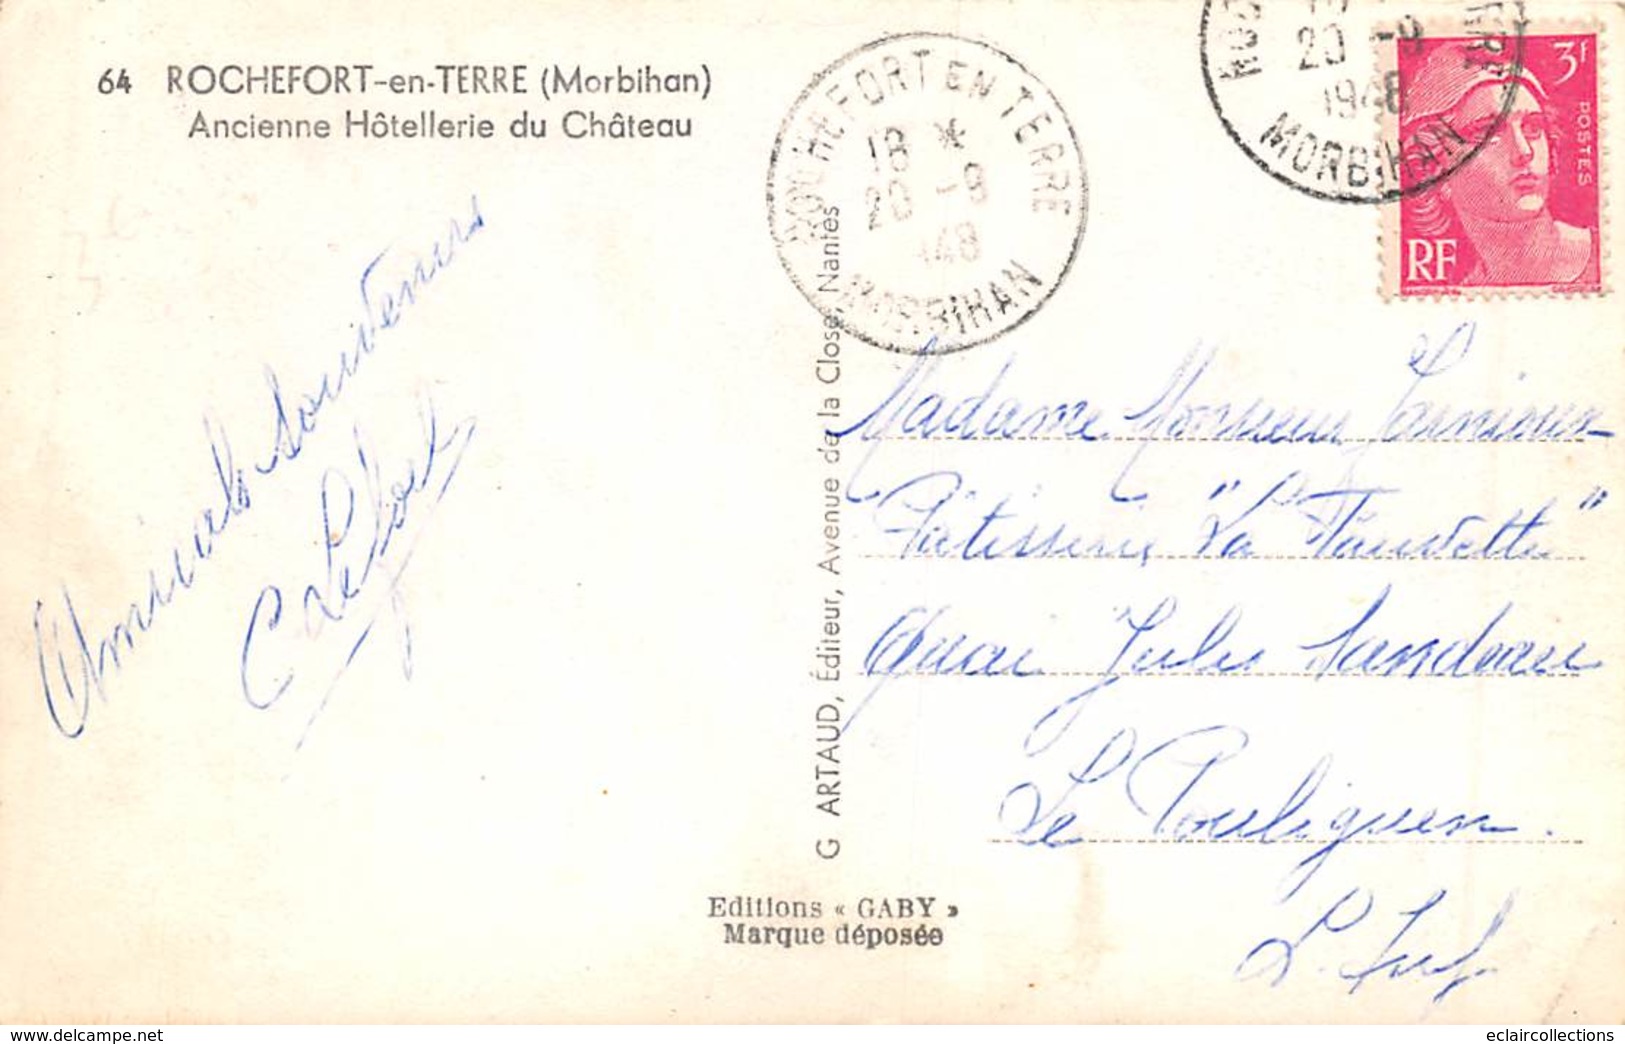 64 ROCHEFORT-en-TERRE (Morbihan)
Ancienne Hôtellerie du Château
Amicals Souvenirs
C Lefort
ROCHEFORT EN TERRE
18 *
20 -9
1948
MORBIHAN
20 -9
1948
MORBIHAN
3F
POSTES
RF
G ARTAUD, Éditeur, Avenue de la Close, Nantes
Madame Monsieur
Pâtisserie "La Fauvette"
Quai Jules Sandeau
Le Pouliguen.
L. Inf.
Editions « GABY »
Marque déposée
www.delcampe.net
eclaircollections